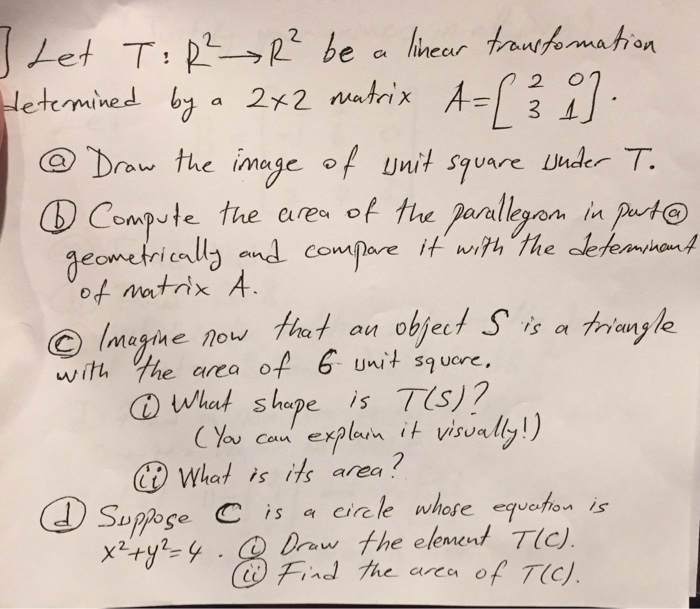 ] Let T: R²→R² be a linear transformation
determined by a 2×2 matrix A=[2 0
3 1].
ⓐ Draw the image of unit square under T.
ⓑ Compute the area of the parallegrom in part ⓐ
geometrically and compare it with the determinant
of matrix A.
ⓒ Imagine now that an object S is a triangle
with the area of 6 unit square.
ⓘ What shape is T(S)?
(You can explain it visually!)
ⓘⓘ What is its area?
ⓓ Suppose C is a circle whose equation is
x²+y²=4. ⓘ Draw the element T(C).
ⓘⓘ Find the area of T(C).